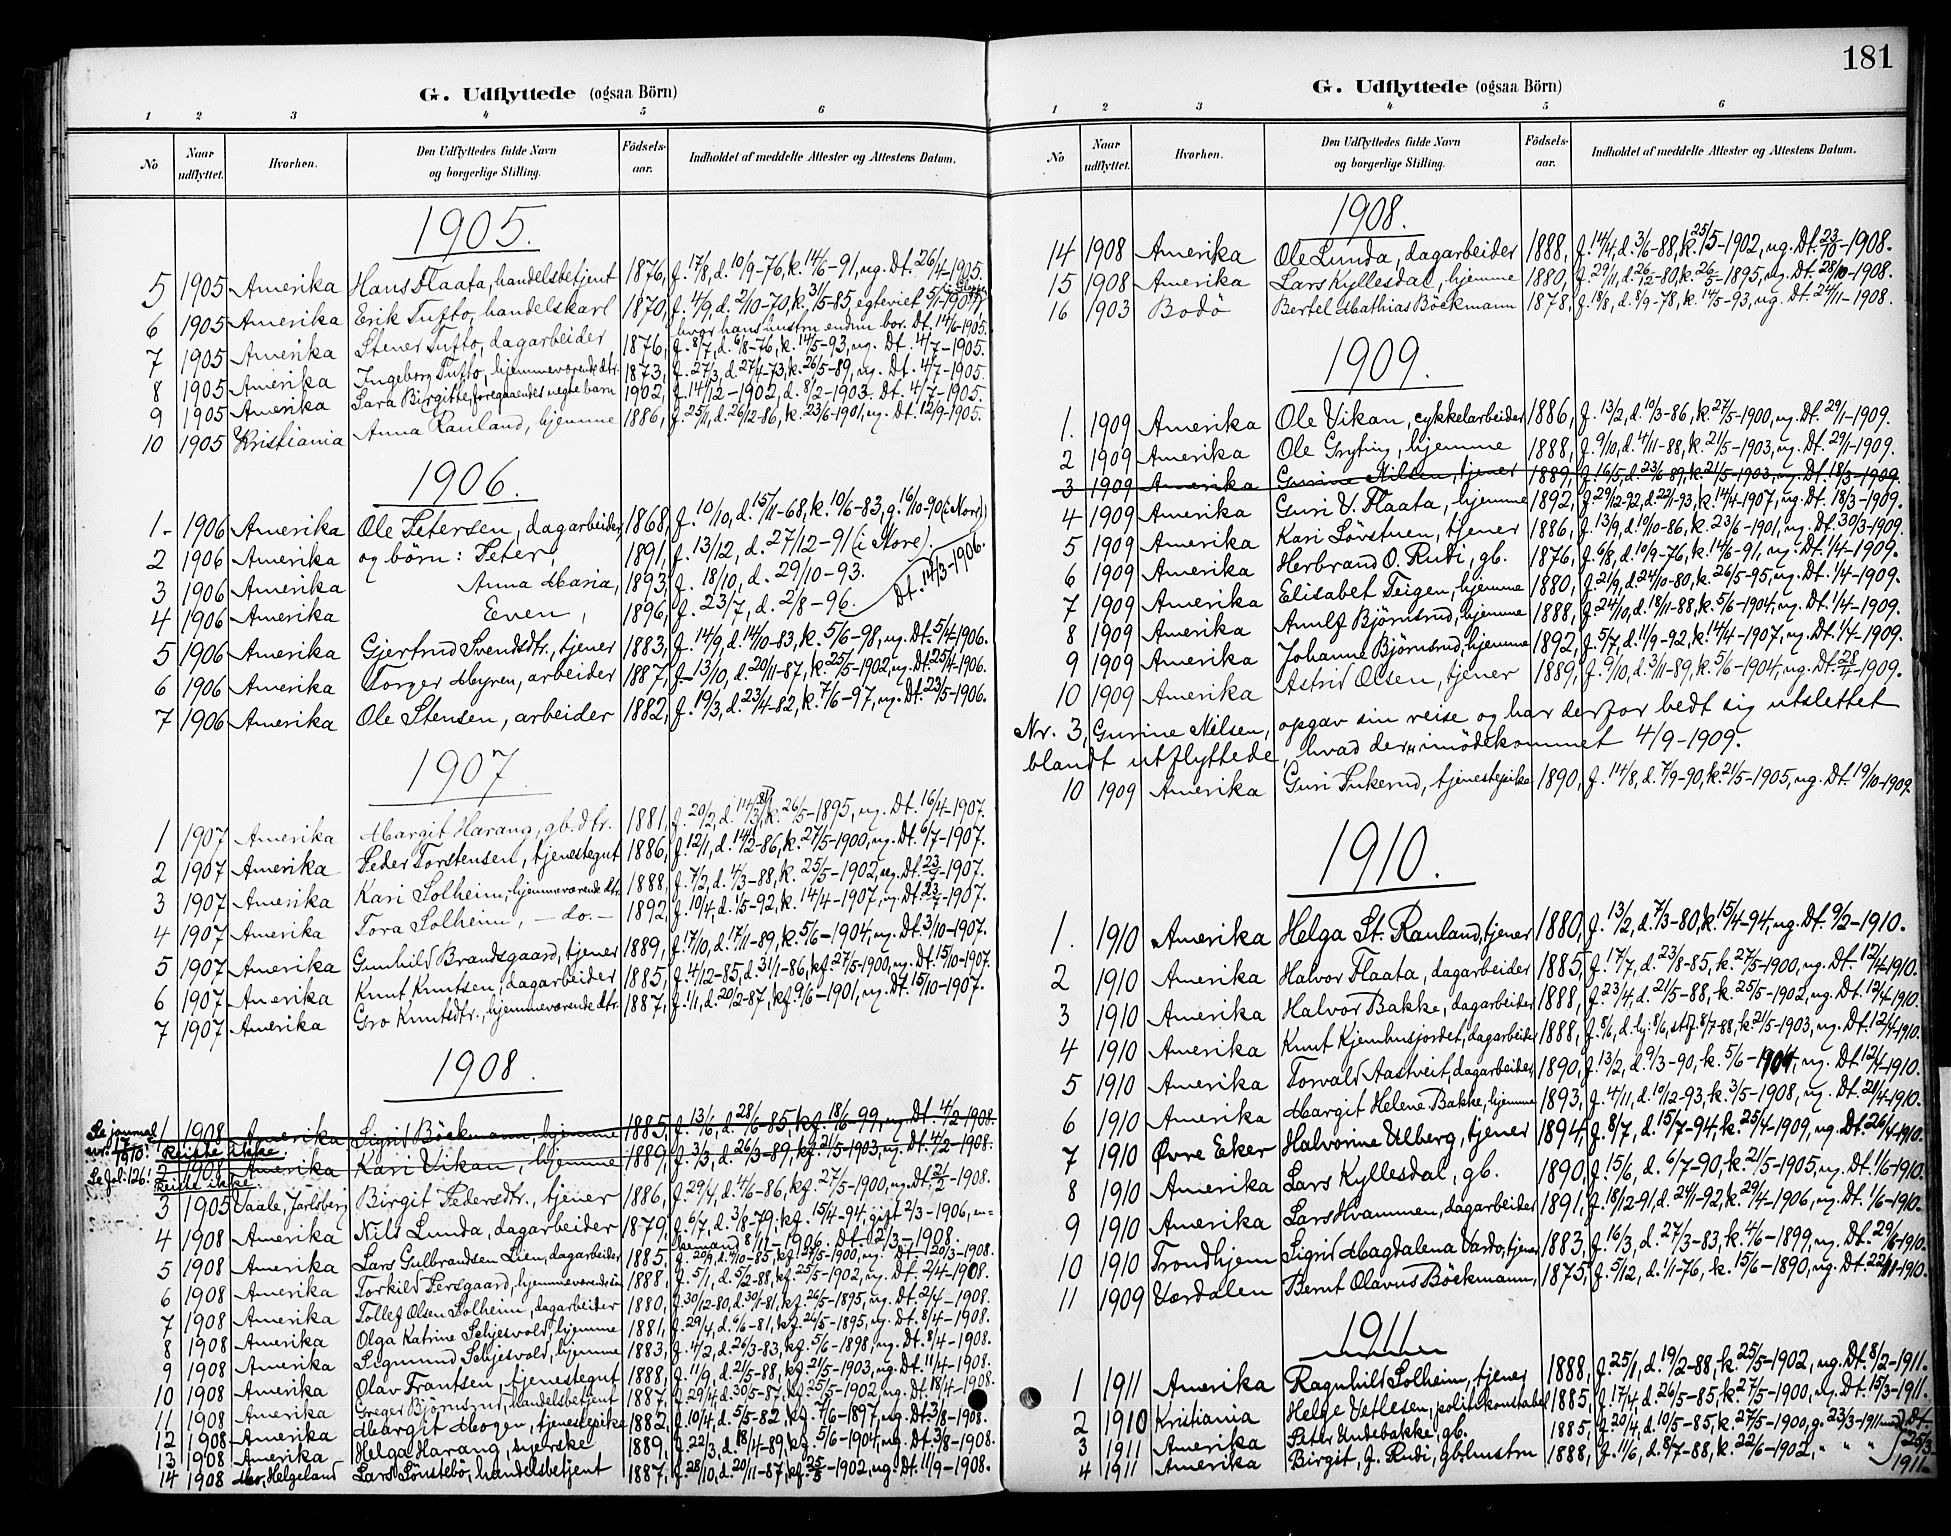 G. Udflyttede (ogsaa Börn)
1 2 3 4 5 6
No Naar udflyttet. Hvorhen. Den Udflyttedes fulde Navn og borgerlige Stilling. Födsels-aar. Indholdet af meddelte Attester og Attestens Datum.
1905.
5 1905 Amerika Hans Flaata, handelsbetjent 1876, f. 17/8, d. 10/9-76, k. 14/6-91, ug. Dt. 26/4-1905.
6 1905 Amerika Erik Tufto, handelskarl 1870, f. 4/9, d. 2/10-70, k. 31/5-85, egteviet 5/1-1901
hvor hans hustru endnu bor. Dt. 14/6-1905.
7 1905 Amerika Stener Tufto, dagarbeider 1876, f. 8/7, d. 6/8-76, k. 14/5-93, ug. Dt. 4/7-1905.
8 1905 Amerika Ingeborg Tufto, hjemmeværende dtr. 1873, f. 27/3, d. 27/4-73, k. 26/5-89, ug. Dt. 4/7-1905.
9 1905 Amerika Sara Birgitte, foregaaendes uegte barn 1902, f. 14/12-1902, d. 8/2-1903. Dt. 4/7-1905.
10 1905 Kristiania Anna Rauland, hjemme 1886, f. 25/11, d. 26/12-86, k. 23/6-1901, ug. Dt. 12/9-1905.
1906.
1- 1906 Amerika Ole Petersen, dagarbeider, 1868, f. 10/10, d. 15/11-68, k. 10/6-83, g. 16/10-90 (i Nord)
2 1906 Amerika og börn: Peter, 1891, f. 13/12, d. 27/12-91 (i Nore).
3 1906 Amerika Anna Maria, 1893, f. 18/10, d. 29/10-93.
4 1906 Amerika Even, 1896, f. 23/7, d. 2/8-96. Dt. 14/3-1906.
5 1906 Amerika Gjertrud Svendsdtr., tjener 1883, f. 14/9, d. 14/10-83, k. 5/6-98, ug. Dt. 5/4-1906.
6 1906 Amerika Torger Myren, arbeider 1887, f. 13/10, d. 20/11-87, k. 25/5-1902, ug. Dt. 25/4-1906.
7 1906 Amerika Ole Stensen, arbeider 1882, f. 19/3, d. 23/4-82, k. 7/6-97, ug. Dt. 23/5-1906.
1907
1 1907 Amerika Margit Harang, gb. dtr. 1881, f. 20/2, d. 14/3 81, k. 26/5-1895, ug. Dt. 16/4-1907.
2 1907 Amerika Peder Torstensen, tjenestegut 1886, f. 12/1, d. 14/2-86, k. 27/5-1900, ug. Dt. 6/7-1907.
3 1907 Amerika Kari Solheim, hjemmeværende dtr. 1888, f. 7/2, d. 4/3-88, k. 25/5-1902, ug. Dt. 23/7-1907.
4 1907 Amerika Tora Solheim, - do. - 1892, f. 10/4, d. 1/5-92, k. 14/4-1907, ug. Dt. 23/7-1907.
5 1907 Amerika Gunhild Brandsgaard, tjener 1889, f. 17/10, d. 17/11-89, k. 5/6-1904, ug. Dt. 3/10-1907.
6 1907 Amerika Knut Knutsen, dagarbeider 1885, f. 4/12-85, d. 31/1-86, kf. 27/5-1900, ug. Dt. 15/10-1907.
7 1907 Amerika Gro Knutsdtr., hjemmeværende dtr. 1887, f. 1/1, d. 20/2-87, kf. 9/6-1901, ug. Dt. 15/10-1907.
1908.
Se journal nr. 17 1910!
1 1908 Amerika Sigrid Böckmann, hjemme 1885, f. 13/6, d. 28/6-85 kf. 18/6-99, ug. Dt. 4/2-1908.
Reiste ikke.
Se Jol: 126!
2 1908 Amerika Kari Vikan, hjemme 1889, f. 3/3, d. 26/3-89, kf. 21/5-1903, ug. Dt. 4/2-1908.
Reiste ikke.
3 1905 Vaale, Jarlsberg Birgit Pedersdtr., tjener 1886, f. 29/4, d. 4/6-86, kf. 27/5-1900, ug. Dt. 2/2-1908.
4 1908 Amerika Nils Lunda, dagarbeider 1879, f. 6/7, d. 3/8-79, kf. 15/4-94, gift 2/3-1906, en-
kemand 8/11-1906. Dt. 12/3-1908.
5 1908 Amerika Lars Gulbrandsen Lien, dagarbeider 1885, f. 20/9, d. 4/10-85, kf. 27/5-1900, ug. Dt. 20/3-1908.
6 1908 Amerika Torkild Persgaard, hjemmeværende sön 1888, f. 5/1, d. 5/2-88, kf. 25/5-1902, ug. Dt. 2/4-1908.
7 1908 Amerika Tollef Olsen Solheim, dagarbeider 1880, f. 30/12-80, d. 30/1-81, kf. 26/5-1895, ug. Dt. 2/4-1908.
8 1908 Amerika Olga Katrine Schjesvold, hjemme 1881, f. 29/4, d. 6/6-81, kf. 26/5-1895, ug. Dt. 8/4-1908.
9 1908 Amerika Sigmund Schjesvold, hjemme 1883, f. 4/2, d. 26/3-83, kf. 5/6-1898, ug. Dt. 8/4-1908.
10 1908 Amerika Olav Frantsen, tjenestegut 1888, f. 11/9, d. 21/5-88, kf. 21/5-1903, ug. Dt. 11/4-1908.
11 1908 Amerika Greger Björnsrud, handelsbetjent 1887, f. 29/4, d. 30/5-87, kf. 25/5-1902, ug. Dt. 18/4-1908.
12 1908 Amerika Margit Mogen, tjenestepike 1882, f. 10/4, d. 5/5-82, kf. 7/6-1897, ug. Dt. 3/8-1908.
13 1908 Amerika Helga Harang, syerske 1889, f. 22/3, d. 18/4-89, kf. 5/6-1904, ug. Dt. 3/8-1908.
14 1908 Mo, Helgeland Lars Sönstebö, handelsbetjent 1887, f. 28/10, d. 20/11-87, kf. 25/5-1902, ug. Dt. 11/9-1908.
181
G. Udflyttede (ogsaa Börn)
1 2 3 4 5 6
No Naar udflyttet. Hvorhen. Den Udflyttedes fulde Navn og borgerlige Stilling. Födsels-aar. Indholdet af meddelte Attester og Attestens Datum.
1908.
14 1908 Amerika Ole Lunda, dagarbeider 1888, f. 14/4, d. 3/6-88, k. 25/5-1902, ug. Dt. 23/10-1908.
15 1908 Amerika Lars Kyllesdal, hjemme 1880, f. 29/11, d. 26/12-80, k. 26/5-1895, ug. Dt. 28/10-1908.
16 1903 Bodö Bertel Mathias Böckmann 1878, f. 18/8, d. 8/9-78, k. 14/5-93, ug. Dt. 24/11-1908.
1909.
1. 1909 Amerika Ole Vikan, cykkelarbeider 1886, f. 13/2, d. 10/3-86, k. 27/5-1900, ug. Dt. 29/1-1909.
2 1909 Amerika Ole Gryting, hjemme 1888, f. 9/10, d. 14/11-88, k. 21/5-1903, ug. Dt. 29/1-1909.
3 1909 Amerika Gurine Nilsen, tjener 1889, f. 16/5, d. 23/6-89, k. 21/5-1903, ug. Dt. 18/3-1909.
4 1909 Amerika Guri V. Flaata, hjemme 1892, f. 29/12-92, d. 22/1-93, k. 14/4-1907, ug. Dt. 18/3-1909.
5 1909 Amerika Kari Lövstuen, tjener 1886, f. 13/9, d. 10/10-86, k. 23/6-1901, ug. Dt. 30/3-1909.
6 1909 Amerika Herbrand O. Rudi, gb. 1876, f. 6/8, d. 10/9-76, k. 14/6-91, ug. Dt. 1/4-1909.
7 1909 Amerika Elisabet Teigen, hjemme 1880, f. 21/9, d. 24/10-80, k. 26/5-95, ug. Dt. 1/4-1909.
8 1909 Amerika Arnulf Björnsrud, hjemme 1888, f. 24/10, d. 18/11-88, k. 5/6-1904, ug. Dt. 1/4-1909.
9 1909 Amerika Johanne Björnsrud, hjemme 1892, f. 5/7, d. 11/9-92, k. 14/4-1907, ug. Dt. 1/4-1909.
10 1909 Amerika Astrid Olsen, tjener 1889, f. 9/10, d. 3/11-89, k. 5/6-1904, ug. Dt. 28/4-1909.
Nr. 3, Gurine Nilsen, opgav sin reise og har derfor bedt sig utslettet
blandt utflyttede, hvad der er imödekommet 4/9-1909.
10 1909 Amerika Guri Fukerud, tjenestepike 1890, f. 14/8, d. 7/9-90, k. 21/5-1905, ug. Dt. 19/10-1909.
1910.
1. 1910 Amerika Helga St. Rauland, tjener 1880, f. 13/2, d. 7/3-80, k. 15/4-94, ug. Dt. 9/2-1910.
2 1910 Amerika Halvor Flaata, dagarbeider 1885, f. 17/7, d. 23/8-85, k. 27/5-1900, ug. Dt. 12/4-1910.
3 1910 Amerika Halvor Bakke, dagarbeider 1888, f. 23/4, d. 21/5-88, k. 25/5-1902, ug. Dt. 12/4-1910.
4 1910 Amerika Knut Kjemhusjordet, dagarbeider 1888, f. 8/6, d. hj: 8/6, stf. 8/7-88, k. 21/5-1903, ug. Dt. 12/4-1910.
5 1910 Amerika Torvald Aastveit, dagarbeider 1890, f. 13/2, d. 9/3-90, k. 5/6-1904, ug. Dt. 12/4-1910.
6 1910 Amerika Margit Helene Bakke, hjemme 1893, f. 4/11, d. 10/12-93, k. 3/5-1908, ug. Dt. 21/4-1910.
7 1910 Øvre Eker Halvorine Ulberg, tjener 1894, f. 8/7, d. 15/7-94, k. 25/4-1909, ug. Dt. 26/4-1910.
8 1910 Amerika Lars Kyllesdal, gb. 1890, f. 15/6, d. 6/7-90, k. 21/5-1905, ug. Dt. 1/6-1910.
9 1910 Amerika Lars Kvammen, dagarbeider 1891, f. 18/12-91, d. 24/1-92, k. 29/4-1906, ug. Dt. 1/6-1910.
10 1910 Trondhjem Sigrid Magdalena Vardo, tjener 1883, f. 16/3, d. 27/3-83, k. 4/6-1899, ug. Dt. 29/6-1910.
11 1909 Værdalen Bernt Olavus Böckmann, 1875, f. 5/12, d. 1/1-76, k. 15/6-1890, ug. Dt. 22/11-1910.
1911
1 1911 Amerika Ragnhild Solheim, tjener 1888, f. 25/1, d. 19/2-88, k. 25/5-1902, ug. Dt. 8/2-1911.
2 1910 Kristiania Helge Vetlesen, politikonstabel 1885, f. 17/4, d. 26/5-85, k. 27/5-1900, ug. Dt. 15/3-1911.
3 1911 Amerika Peter Undebakke, gb. 1885, f. 20/4, d. 10/5-85, k. 27/5-1900, g. 23/3-1911 med Dt.
4 1911 Amerika Birgit, f. Rudi, gb.hustru 1888, f. 11/6, d. 8/7-88, k. 22/6-1902, " " " 25/3-1911.